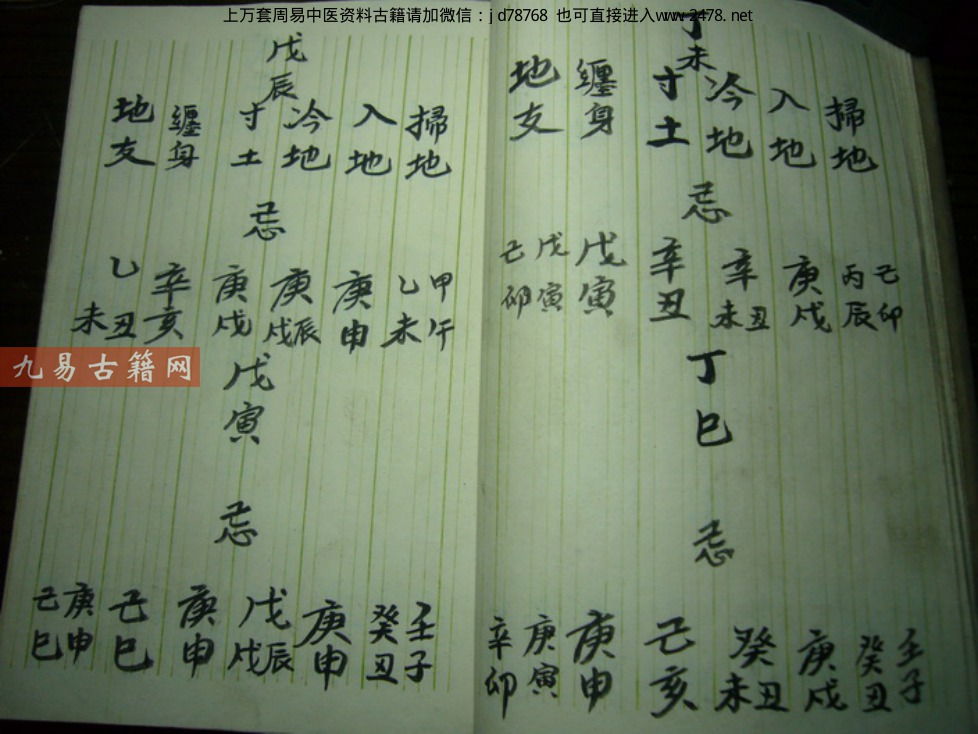 上万套周易中医资料古籍请加微信：jd78768 也可直接进入www.2478.net
丁未
掃地
入地
冷地
寸土
纏身
地支
忌
己卯
丙辰
庚戌
辛丑未
辛丑
戊寅
戊寅
己卯
丁巳
忌
壬子
癸丑
庚戌
癸丑未
己亥
庚申
庚寅
辛卯
戊辰
掃地
入地
冷地
寸土
纏身
地支
忌
甲午
乙未
庚申
庚辰戌
庚戌
辛亥
乙丑未
戊寅
忌
壬子
癸丑
庚申
戊辰戌
庚申
己巳
庚申
己巳
九易古籍网